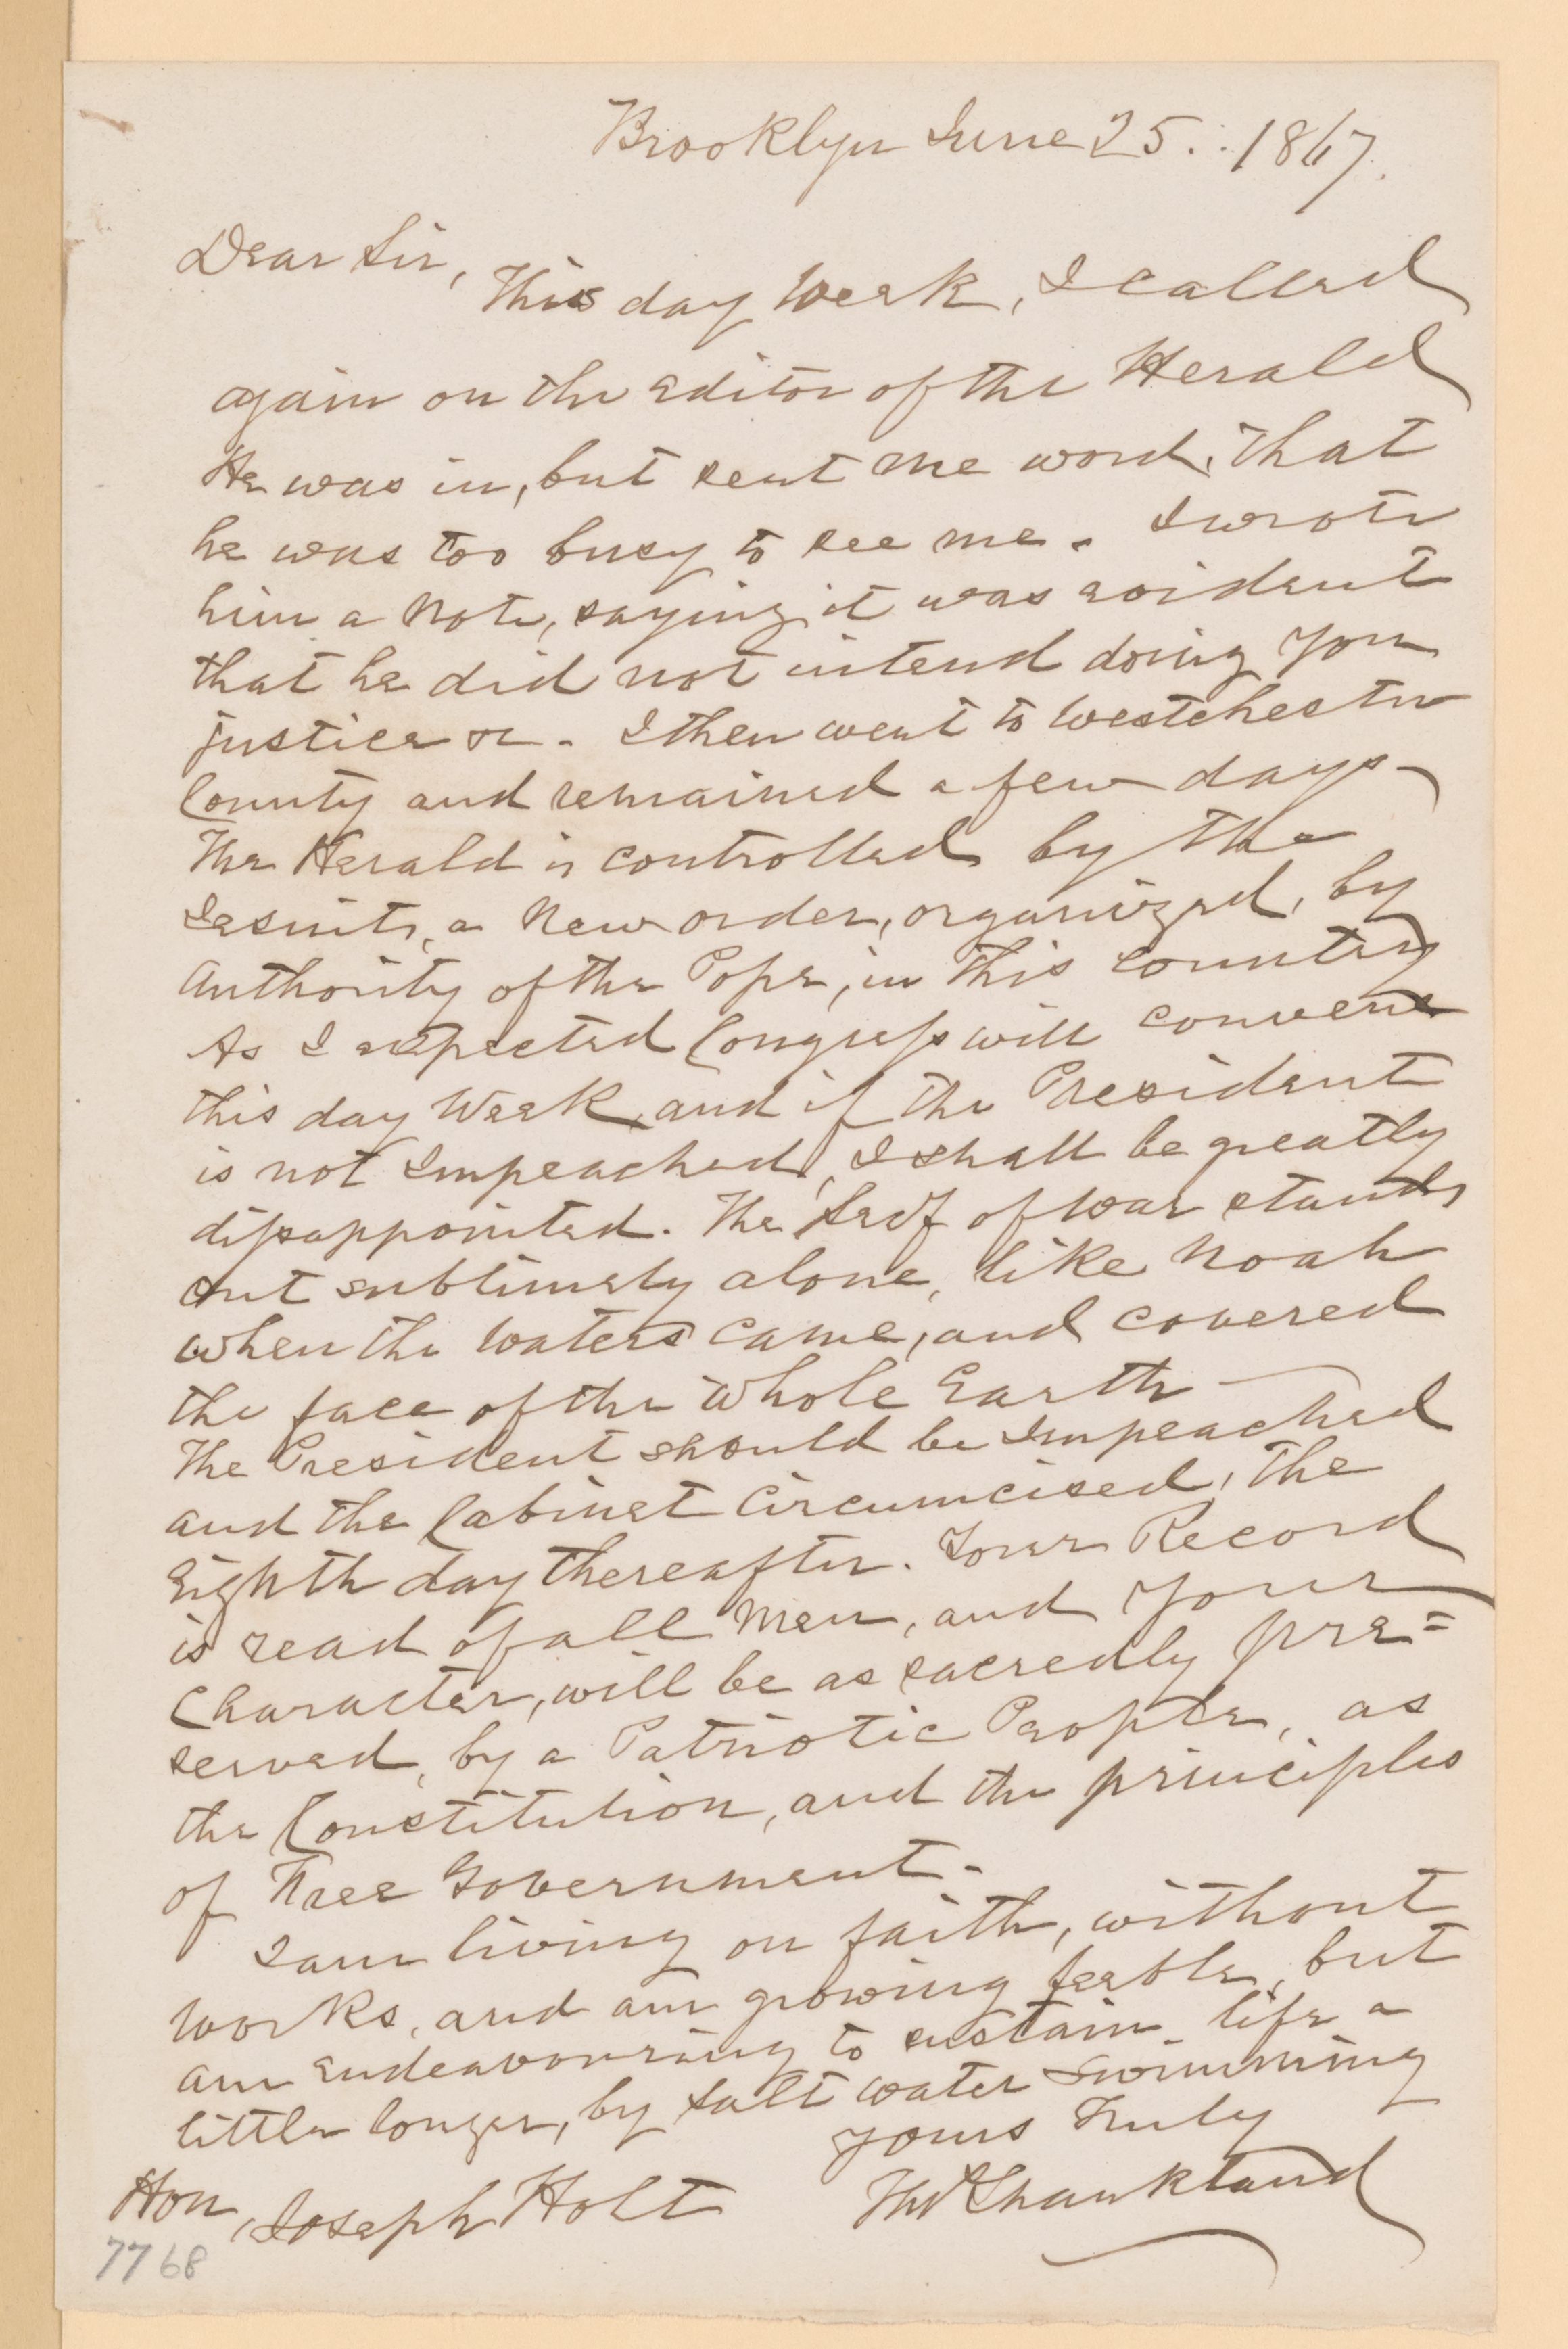 Brooklyn June 25. : 1867.
Dear Sir,
This day week, I called
again on the Editor of the Herald
He was in, but sent me word, that
he was too busy to see me. I wrote
him a Note, saying it was evident
that he did not intend doing you
justice &c. I then went to Westchester
County and remained a few days -
The Herald is controlled by the
Jesuits, a New order, organized, by
Authority of the Pope, in this Country
As I expected Congress will convene
this day Week, and if the President
is not Impeached, I shall be greatly
dissappointed. The Secy of War stands
out sublimely alone, like Noah
when the Waters came, and covered
the face of the Whole Earth -
The President should be Impeached
and the Cabinet Circumcised, the
Eighth day thereafter. Your Record
is read of all Men, and Your
Character, will be as sacredly pre=
served, by a Patriotic People, as
the Constitution, and the principles
of Free Government -
I am living on faith, without
works, and am growing feeble, but
am endeavouring to sustain life a
little longer, by Salt water Swimming
Yours Truly
Thos Shankland
Hon, Joseph Holt
7768